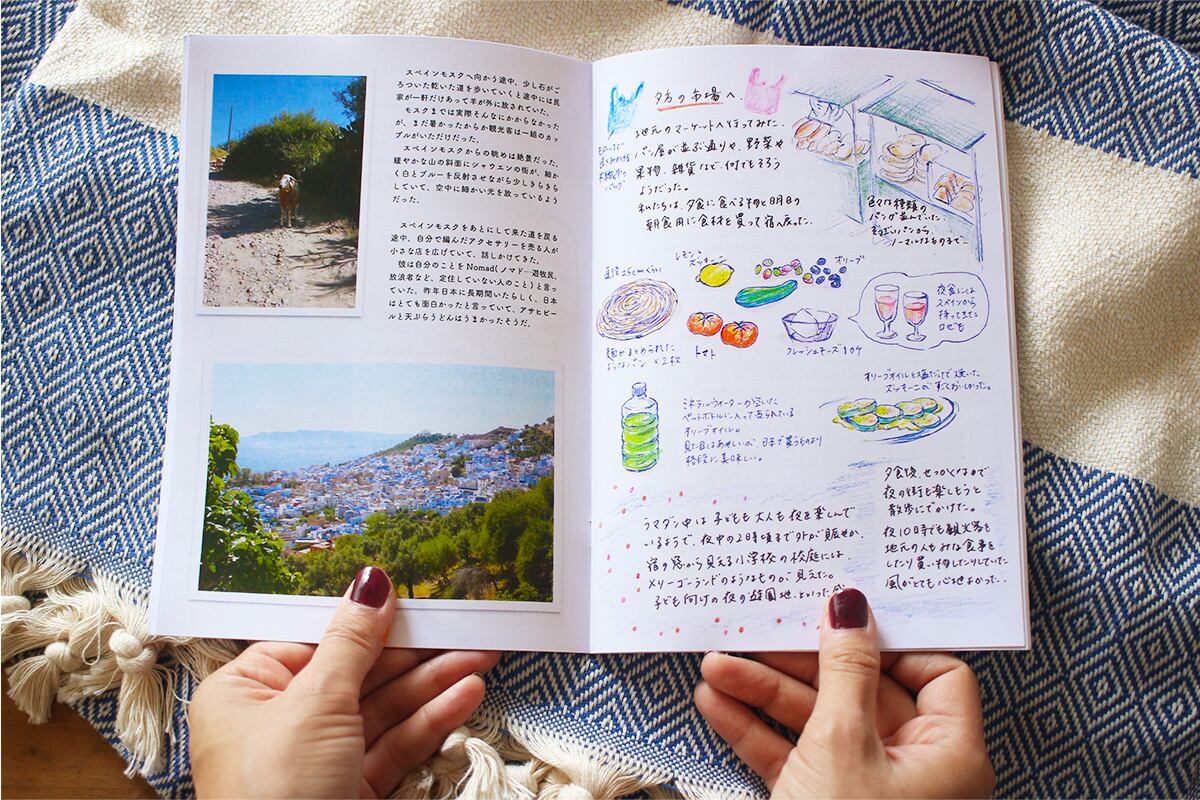 スペインモスクへ向かう途中、少し石がご
ろついた乾いた道を歩いていくと途中には民
家が一軒だけあって羊が外に放されていた。
モスクまでは実際そんなにかからなかった
が、まだ暑かったからか観光客は一組のカッ
プルがいただけだった。
スペインモスクからの眺めは絶景だった。
緩やかな山の斜面にシャウエンの街が、細か
く白とブルーを反射させながら少しきらきら
していて、空中に細かい光を放っているよう
だった。
スペインモスクをあとにして来た道を戻る
途中、自分で編んだアクセサリーを売る人が
小さな店を広げていて、話しかけてきた。
彼は自分のことをNomad(ノマド…遊牧民、
放浪者など、定住していない人のこと)と言っ
ていた。昨年日本に長期間いたらしく、日本
はとても面白かったと言っていて、アサヒビー
ルと天ぷらうどんはうまかったそうだ。
夕方の市場へ、
地元のマーケットへ行ってみた。
パン屋が並ぶ通りや、野菜や
果物、雑貨など、何でもそろう
ようだった。
私たちは、夕食に食べる物と明日の
朝食用に食材を買って宿へ戻った。
モロッコで
よくみかける
不織布の
バッグ
色々な種類の
パンが並んでいた。
パンから、
ノーマルなものまで…
直径25cmくらい
麺がまとめられた
ようなパン ×2枚
レモン、
ズッキーニ
オリーブ
トマト
フレッシュチーズ1カケ
夜食には
スペインから
持ってきた
ロゼも
オリーブオイルと塩だけで焼いた
ズッキーニがすごくおいしかった。
ミネラルウォーターの空いた
ペットボトルに入って売られている
オリーブオイル。
見た目はあやしいが、日本で買うものより
格段に美味しい。
ラマダン中は子どもも大人も夜を楽しんで
いるようで、夜中の2時頃まで外が賑やか。
宿の窓から見える小学校の校庭には、
メリーゴーランドのようなものが見えた。
子ども向けの夜の遊園地、といった
夕食後、せっかくなので
夜の街を楽しもうと
散歩にでかけた。
夜10時でも観光客も
地元の人もみな食事を
したり買い物したりしていた
風がとても心地よかった。